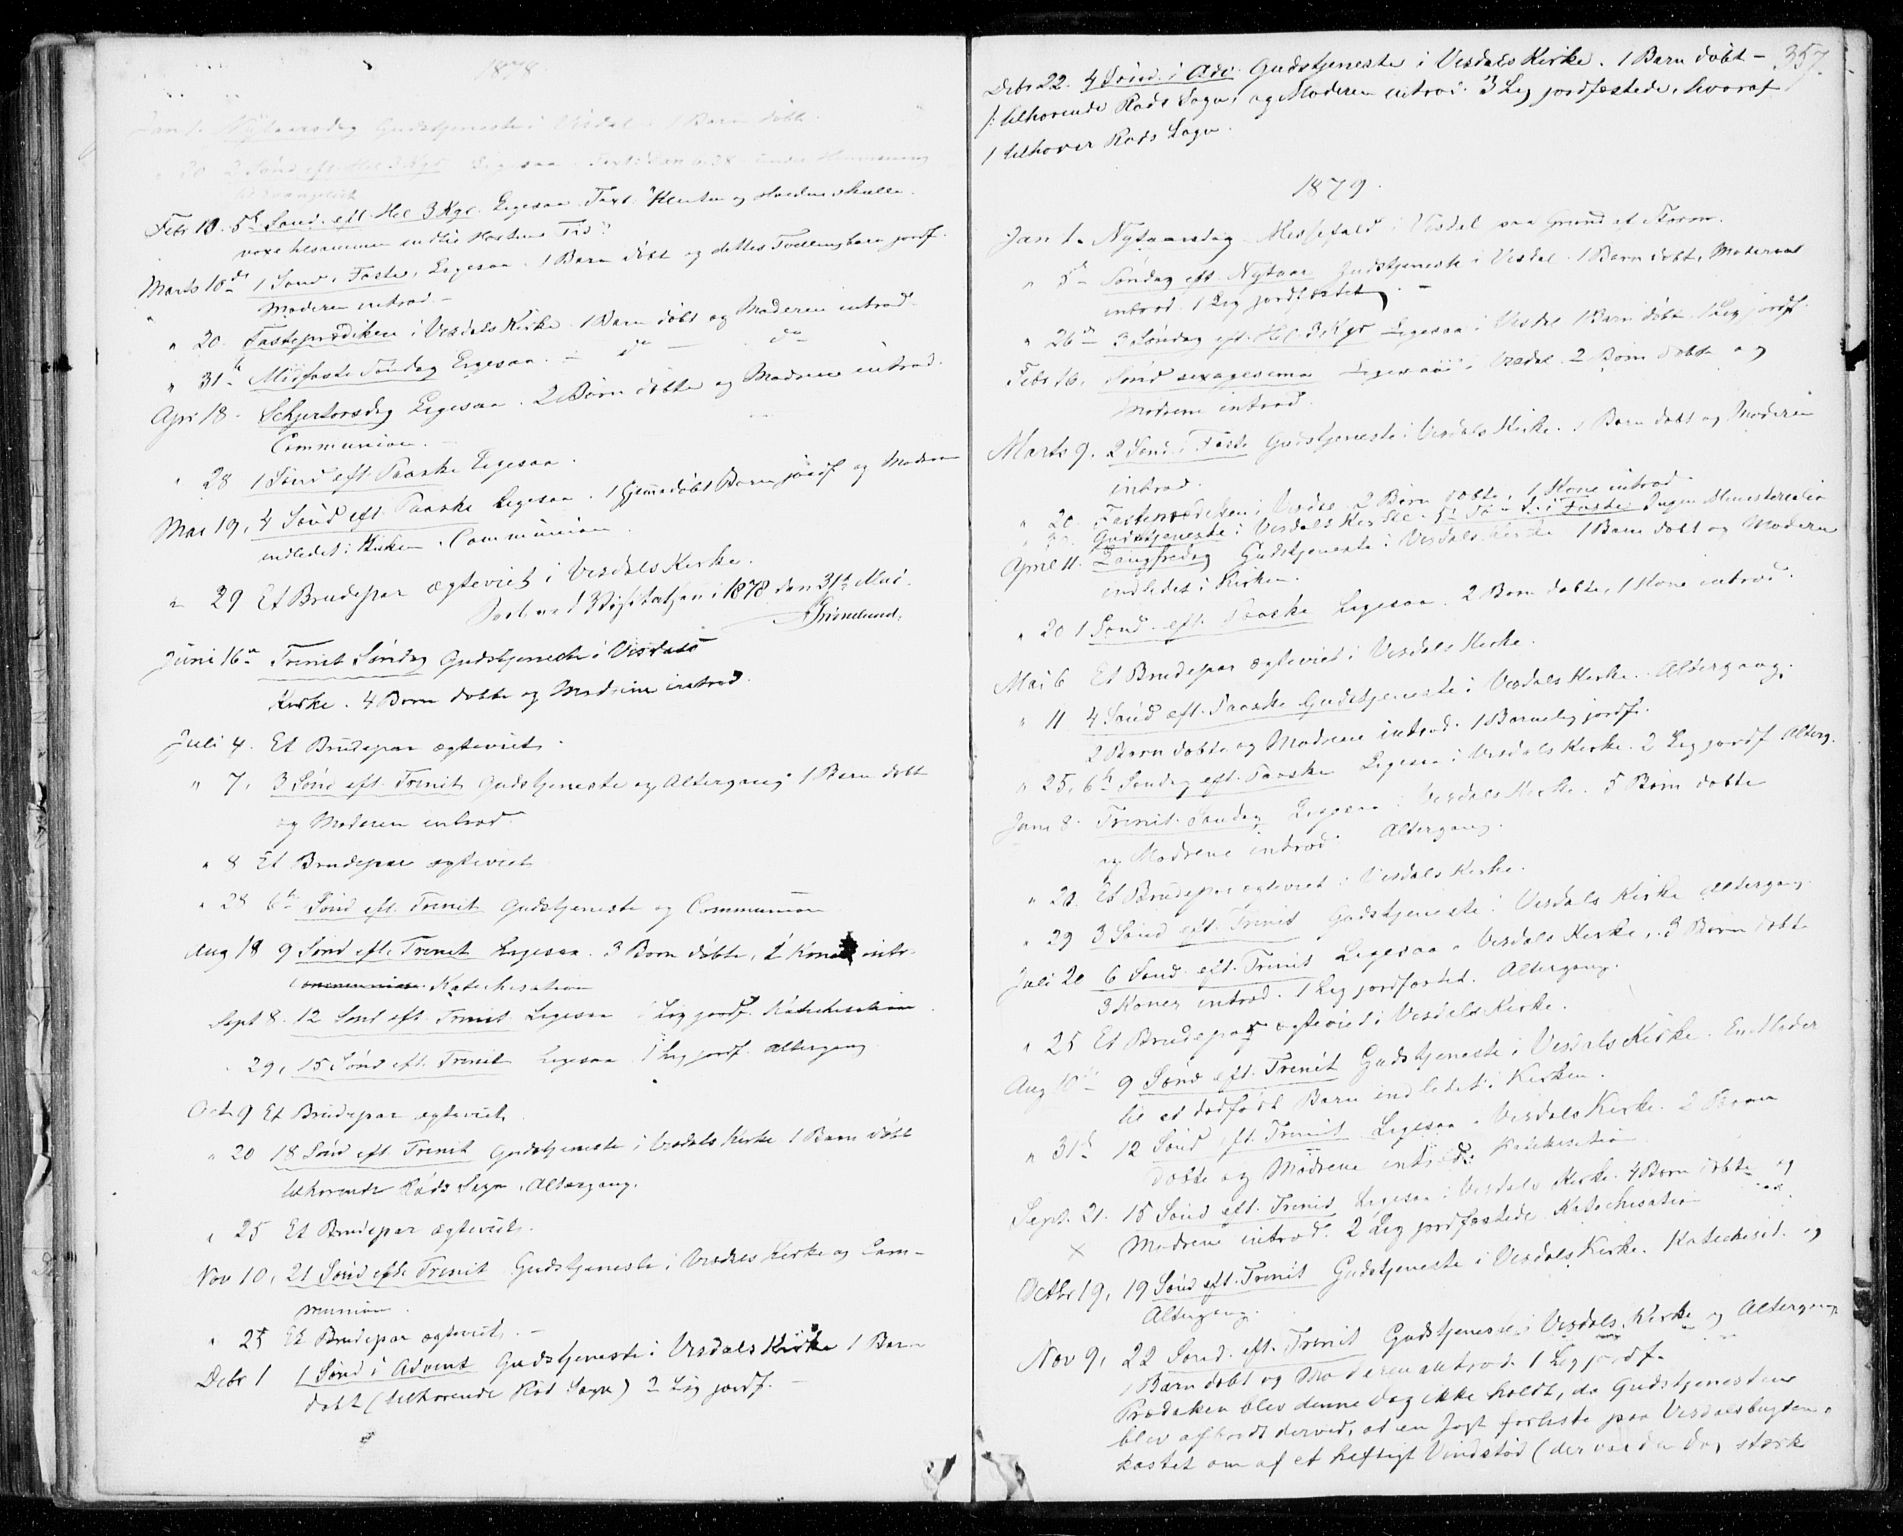 1878.
Jan 1. Nytaarsdag Gudstjeneste i Visdal. 1 Barn døbt.
" 20 2 Sønd eft Hel 3 Kgr Ligesaa. Text:
Febr 10. 5te Sønd. eft. Hel 3 Kgr. Ligesaa. Text. "Hveten og Klinten skulle
voxe tilsammen indtil Høstens Tid".
Marts 10de 1 Sønd. i Faste, Ligesaa. 1 Barn døbt og dettes Tvillingbarn jordf.
Moderen introd. –
" 20. Fasteprædiken i Visdals Kirke. 1 Barn døbt og Moderen introd.
" 31te Midfaste Søndag Ligesaa. – do — do
Apr 18. Skjertorsdag Ligesaa. 2 Børn døbte og Mødrene introd.
Communion. –
" 28 1 Sønd eft Paaske Ligesaa.
Mai 19, 4 Sønd eft. Paaske Ligesaa. 1 hjemmedøbt Barn jordf og Moderen
indledet i Kirken. Communion
" 29 Et Brudepar ægteviet i Visdals Kirke.
Forevist Visitatsen i 1878 den 31te Mai.
Grimelund.
Juni 16de Trinit Søndag Gudstjeneste i Visdals
Kirke. 4 Børn døbte og Mødrene introd.
Juli 4. Et Brudepar ægteviet.
" 7, 3 Sønd eft. Trinit Gudstjeneste og Altergang 1 Barn døbt
og Moderen introd.
" 8 Et Brudepar ægteviet
" 28 6te Sønd eft. Trinit Gudstjeneste og Communion
Aug 18 9 Sønd eft. Trinit Ligesaa. 3 Børn døbte, 2 Koner intr.
Communion. Katechisation
Sept 8. 12 Sønd eft. Trinit Ligesaa 1 Lig jordf. Katechisation
" 29, 15 Sønd eft. Trinit Ligesaa. 1 Lig jordf. Altergang
Oct 9 Et Brudepar ægteviet.
" 20 18 Sønd eft. Trinit Gudstjeneste i Visdals Kirke 1 Barn døbt
tilhørende Røds Sogn. Altergang.
" 25 Et Brudepar ægteviet.
Nov 10, 21 Sønd eft. Trinit Gudstjeneste i Visdals Kirke og Com-
munion.
" 25 Et Brudepar ægteviet. –
Debr 1 1 Sønd i Advent Gudstjeneste i Visdals Kirke 1 Barn
døbt (tilhørende Rød Sogn) 2 Lig jordf. –
357.
Debr 22. 4 Sønd. i Adv. Gudstjeneste i Visdals Kirke. 1 Barn døbt –
/: tilhørende Røds Sogn, og Moderen introd. 3 Lig jordfæstede, hvoraf
1 tilhører Røds Sogn.
1879.
Jan 1. Nytaarsdag Messefald i Visdal paa Grund af Storm.
" 5te Søndag eft. Nytaar Gudstjeneste i Visdal. 1 Barn døbt, Moderen
introd. 1 Lig jordfæstet. –
" 26de 3 Søndag eft. Hel. 3 Kgr Ligesaa i Visdal 1 Barn døbt 1 Lig jordf.
Febr 16, Sønd sexagesima Ligesaa i Visdal. 2 Børn døbte og
Mødrene introd.
Marts 9. 2 Sønd. i Faste Gudstjeneste i Visdals Kirke. 1 Barn døbt og Moderen
introd.
" 20. Fasteprædiken i Visdal. 2 Børn døbte, 1 Kone introd.
" 30. Gudstjeneste i Visdals Kirke. 5te Sønd. i Faste Ingen Ministerialia
April 11. Langfredag Gudstjeneste i Visdals Kirke 1 Barn døbt og Moderen
indledet i Kirken.
" 20 1 Sønd. eft. Paaske Ligesaa. 2 Børn døbte, 1 Kone introd.
Mai 6 Et Brudepar ægteviet i Visdals Kirke.
" 11 4 Sønd eft. Paaske Gudstjeneste i Visdals Kirke. Altergang.
2 Børn døbte og Mødrene introd. 1 Barnelig jordf.
" 25, 6te Søndag eft. Paaske Ligesaa i Visdals Kirke. 2 Lig jordf Alterg.
Juni 8. Trinit. Søndag Ligesaa i Visdals Kirke. 5 Børn døbte
og Mødrene introd. Altergang.
" 20. Et Brudepar ægteviet i Visdals Kirke.
" 29 3 Sønd eft. Trinit Gudstjeneste i Visdals Kirke Altergang.
Juli 20 6 Sønd. eft. Trinit Ligesaa i Visdals Kirke. 3 Børn døbte
3 Koner introd. 1 Lig jordfæstet. Altergang.
" 25 Et Brudepar ægteviet i Visdals Kirke.
Aug 10de 9 Sønd eft. Trinit Gudstjeneste i Visdals Kirke. En Moder
til et dødfødt Barn indledet i Kirken.
" 31te 12 Sønd eft. Trinit Ligesaa i Visdals Kirke. 2 Børn
døbte og Mødrene introd. Katechisation
Sept. 21. 15 Sønd eft. Trinit Ligesaa i Visdals Kirke. 4 Børn døbte og
× Mødrene introd. 2 Lig jordfæstede Katechisation
Octbr 19, 19 Sønd eft. Trinit Gudstjeneste i Visdals Kirke. Katechisat. og
Altergang.
Nov 9, 22 Sønd. eft. Trinit Gudstjeneste i Visdals Kirke og Altergang
1 Barn døbt og Moderen introd. 1 Lig jordf.
Prædiken blev denne Dag ikke holdt, da Gudstjenesten
blev afbrudt derved, at en Jagt forliste paa Visdalsbugten,
kastet om af et heftigt Vindstød (der var den Dag stærk